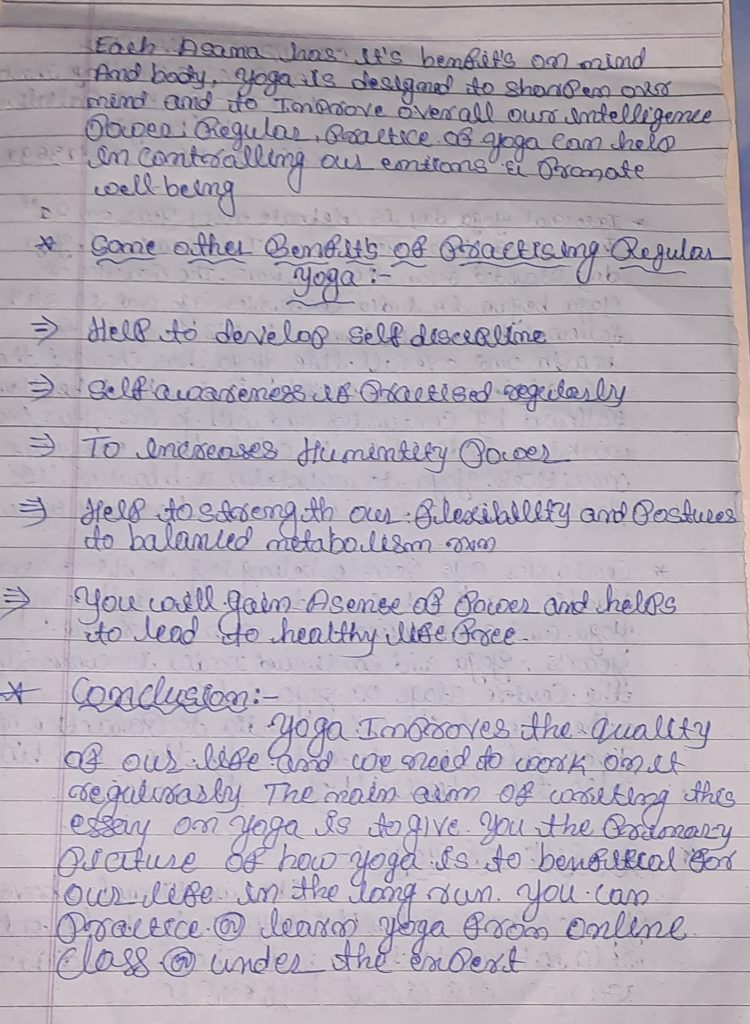 Each Asama has it's benefits on mind
And body, yoga is designd to sharpen our
mind and to Improve overall our intelligence
Power; Regular Practice of yoga can help
in contralling our emtions & Pramate
well-being
* Some other Benfits of Practising Regular
yoga :-
⇒ Help to develop self discipline
⇒ Self awareness if Practised regularly
⇒ To increases Humintity Power
⇒ Help to strength our flexibility and Postures
to balancled metabolism run
⇒ You will gain A sense of Power and helps
to lead to healthy life free.
* Conclusion :-
Yoga Improves the quality
of our life and we need to work on it
The main aim of writing this
essay on yoga is to give you the Primary
Picture of how yoga is to benficial for
our life in the long run. You can
Practice @ learn yoga from online
Class @ under the expert